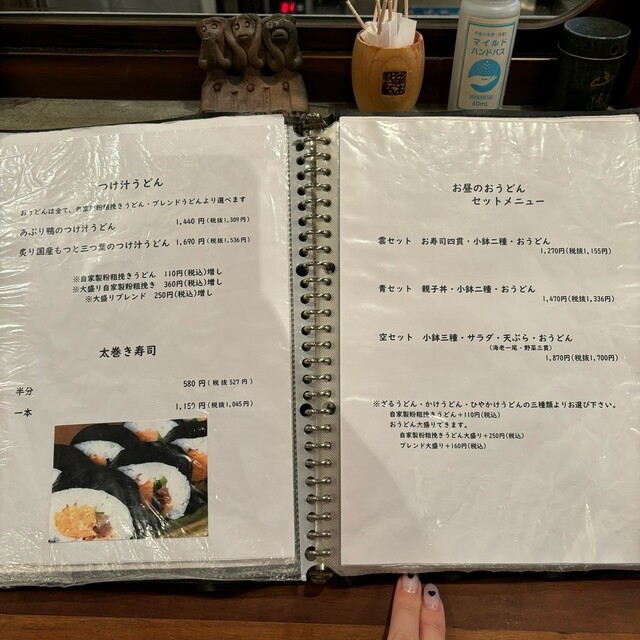 マイルド
ハンドバス
60ml
つけ汁うどん
おうどんは全て、自家製粉粗挽きうどん・ブレンドうどんより選べます
あぶり鴨のつけ汁うどん 1,440 円(税抜1,309円)
炙り国産もつと三つ葉のつけ汁うどん 1,690 円(税抜1,536円)
※自家製粉粗挽きうどん 110円(税込)増し
※大盛り自家製粉粗挽き 360円(税込)増し
※大盛りブレンド 250円(税込)増し
太巻き寿司
半分 580 円(税抜 527 円)
一本 円(税抜1,045円)
お昼のおうどん
セットメニュー
雲セット お寿司四貫・小鉢二種・おうどん
1,270円(税抜1,155円)
青セット 親子丼・小鉢二種・おうどん
1,470円(税抜1,336円)
空セット 小鉢三種・サラダ・天ぷら・おうどん
(海老一尾・野菜三貫)
1,870円(税抜1,700円)
※ざるうどん・かけうどん・ひやかけうどんの三種類よりお選び下さい。
自家製粉粗挽きうどん+110円(税込)
おうどん大盛りできます。
自家製粉粗挽きうどん大盛り+250円(税込)
ブレンド大盛り+160円(税込)